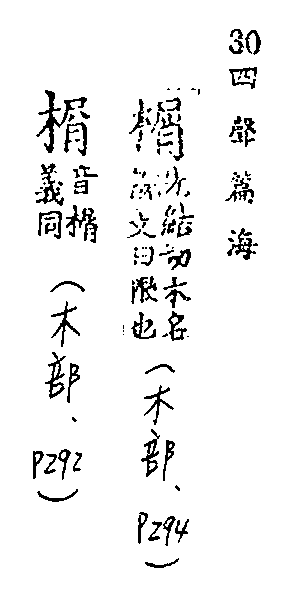 30 四聲篇海
榍 先結切木名
說文曰限也
(木部、P294)
音榍
義同
(木部、P292)